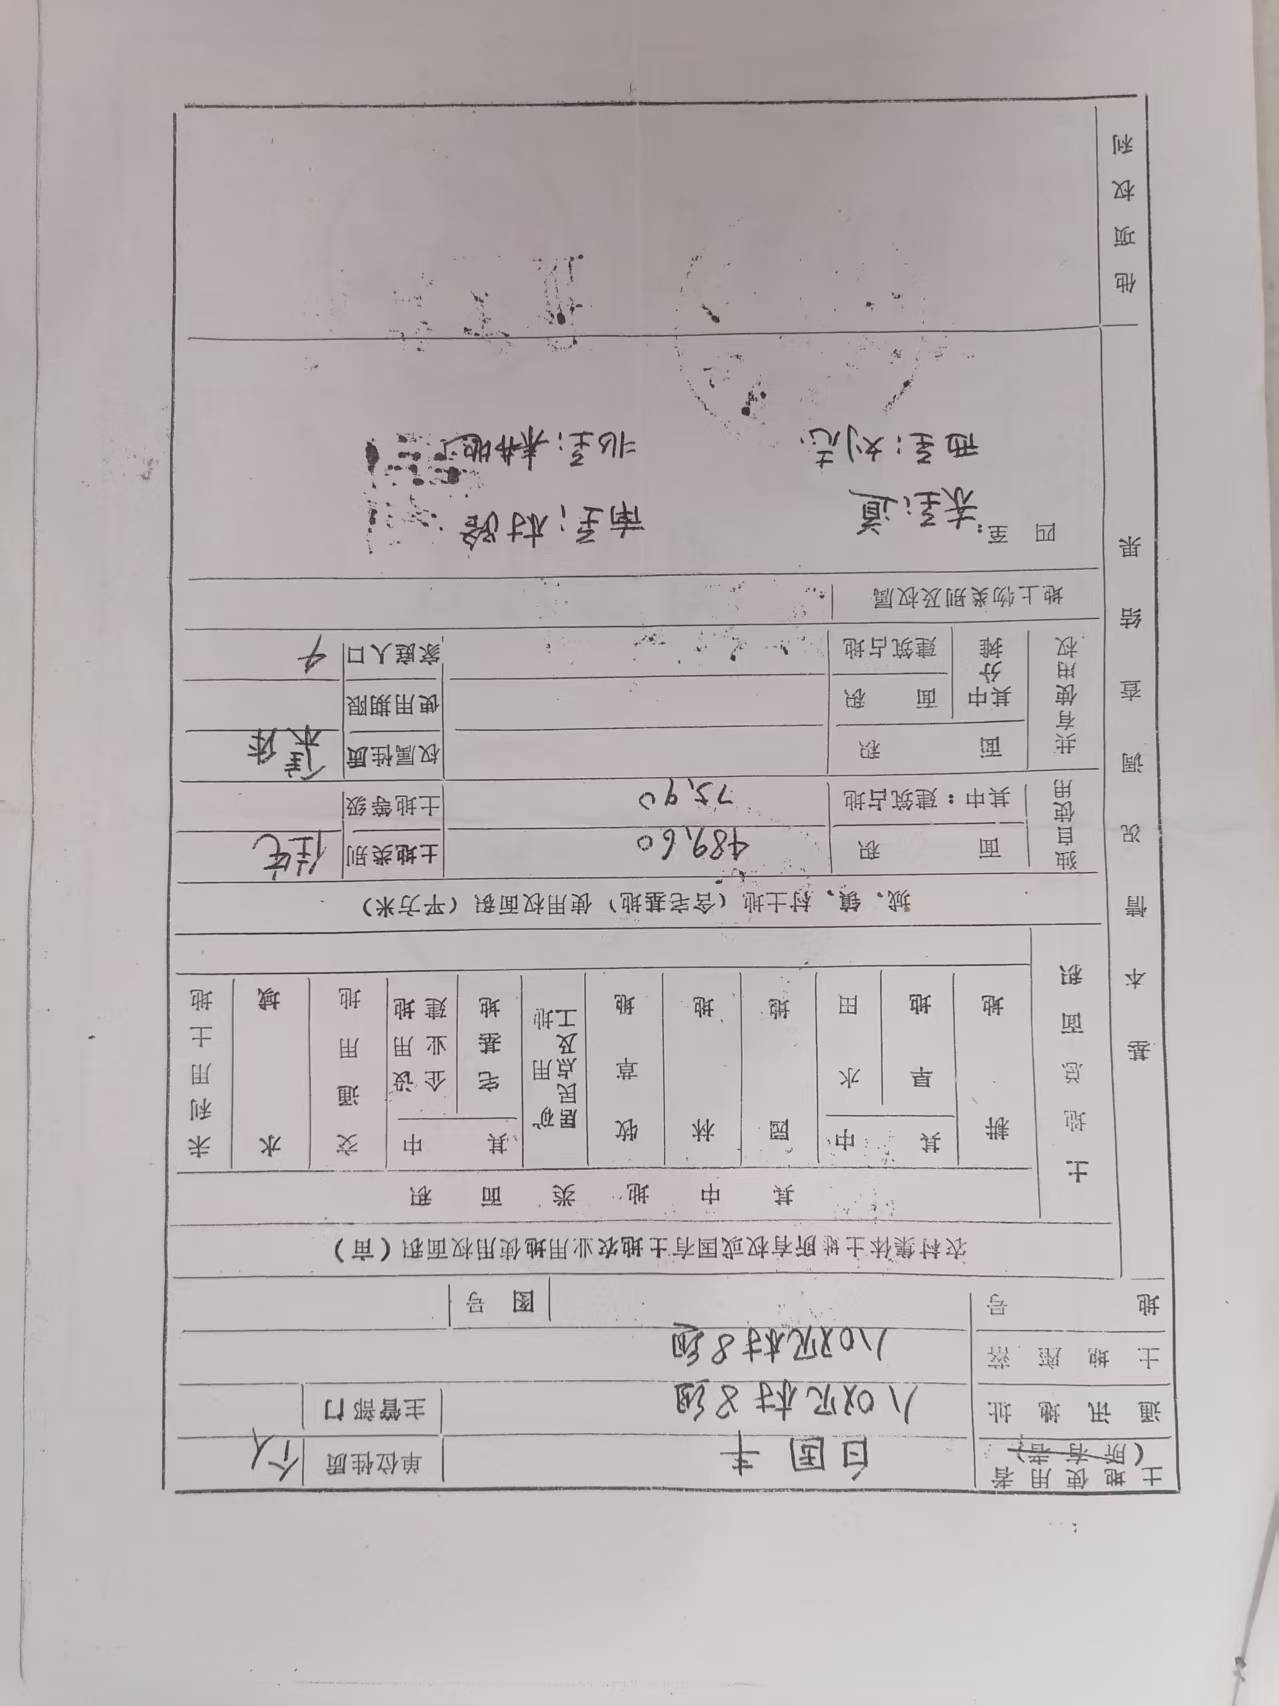 土地使用者
(所有者)
白国丰
单位性质
个人
通讯地址
八噅村8组
主管部门
土地座落
八噅村8组
地号
图号
基本情况调查结果
农村集体土地所有权或国有土地农业用地使用权面积(亩)
土地总面积
其中地类面积
耕地
其中
旱地
水田
园地
林地
牧草地
居民点及工矿用地
其中
宅基地
企业建设用地
交通用地
水域
未利用土地
城、镇、村土地(含宅基地)使用权面积(平方米)
独自使用
面积
489.60
土地类别
住宅
其中:建筑占地
75.90
土地等级
共有使用权
面积
权属性质
集体
其中分摊
面积
使用期限
建筑占地
家庭人口
4
地上物类别及权属
四至:
东至:道
南至:村路
西至:刘志
北至:耕地
他项权利